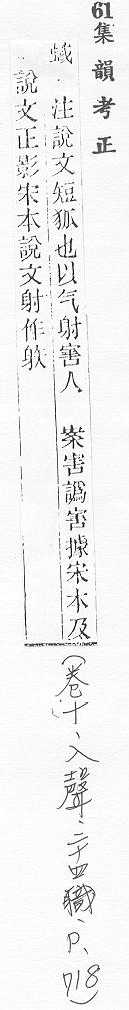 61集韻考正
蜮 注說文短狐也以气射害人 案害譌㝑據宋本及
說文正影宋本說文射作䠶
(卷十、入聲、二十四職、P、718)